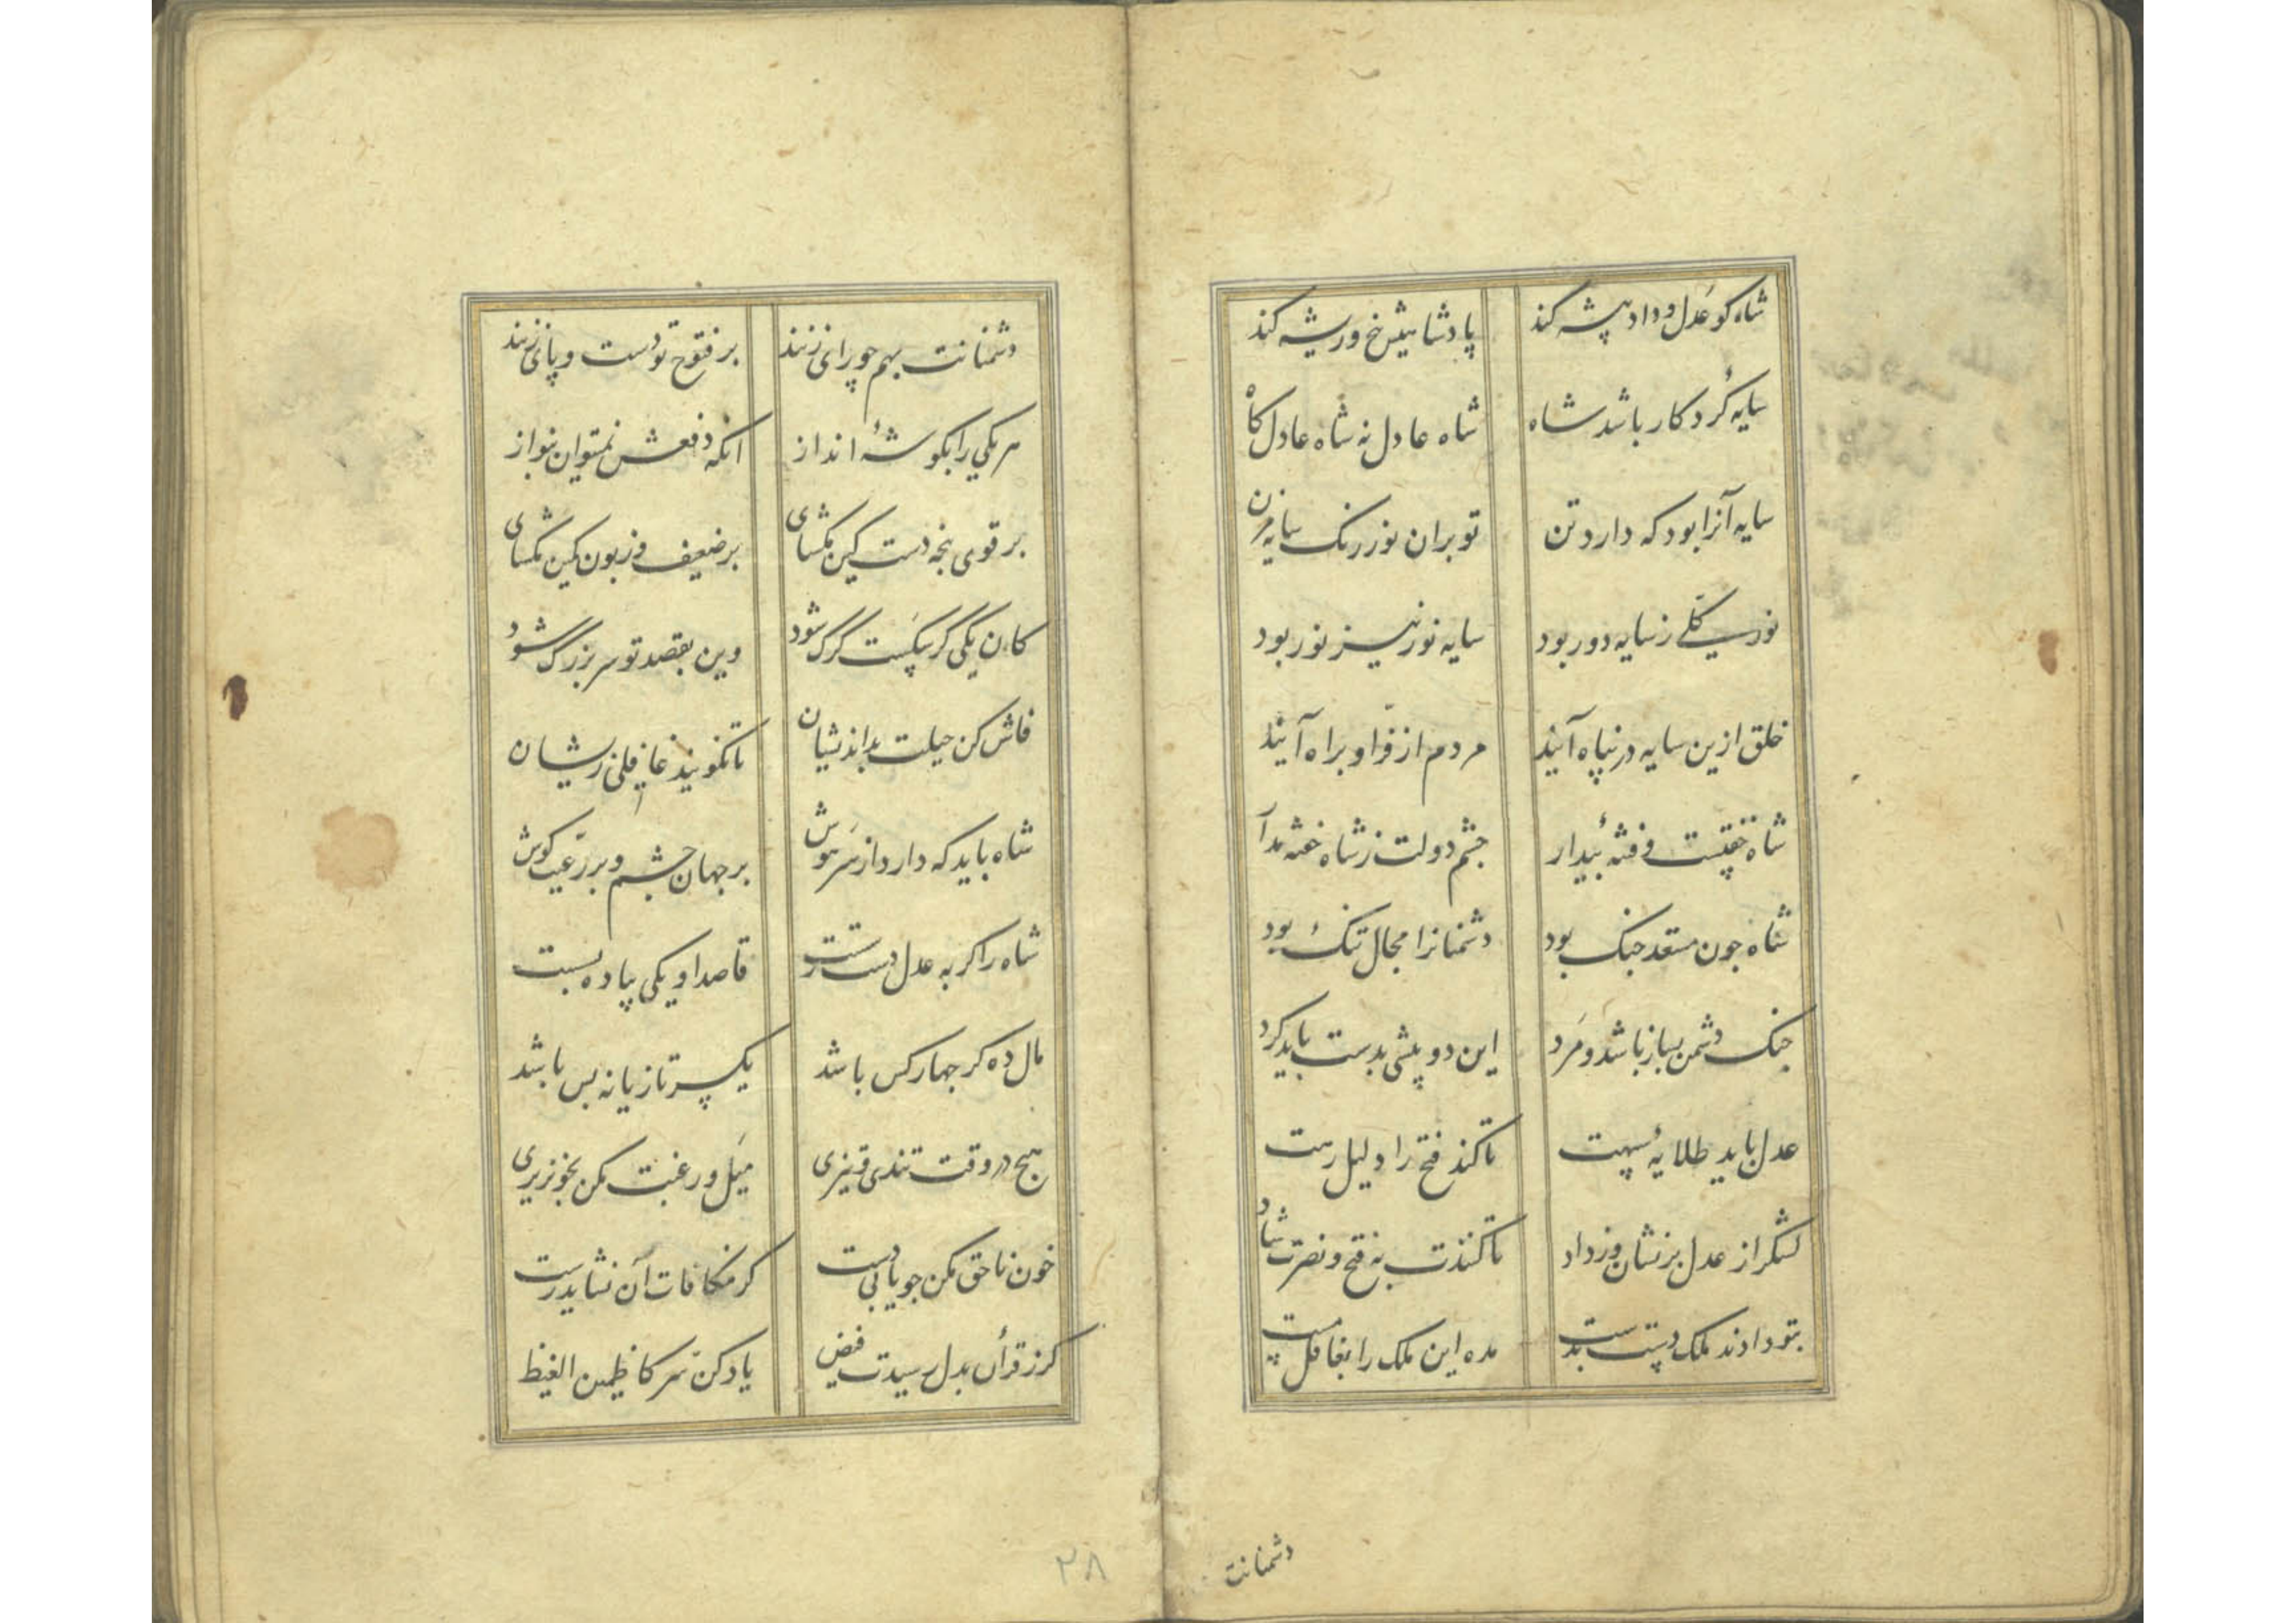 شاه کو عدل و داد پیشه کند پادشاهیش بیخ و ریشه کند
سایهٔ کردکار باشد شاه شاه عادل نه شاه عادل کاه
سایه آنرا بود که دارد تن تو بران نور رنک سایه مزن
نور کلی ز سایه دور بود سایه نور نیز نور بود
خلق ازین سایه در پناه آیند مردم از فر او براه آیند
شاه خفتست و فتنهٔ بیدار چشم دولت ز شاه خفته مدار
شاه جون مستعد جنک بود دشمنانرا مجال تنک بود
جنک دشمن بساز باشد و مرد این دو پیشی بدست باید کرد
عدل باید طلایهٔ سپهت تا کند فتح را دلیل رهت
لشکر از عدل بر نشان وز داد تا کنندت به فتح و نصرت شاد
بتو دادند ملک دست بدست مده این ملک را بغافل مست
دشمنانت
دشمنانت بهم جو رای زنند بر فتوح تو دست و پای زنند
هر یکی را بکوشهٔ انداز انکه دفعش نمیتوان بنواز
بر قوی پنجه دست کین مکشای بر ضعیف و زبون کمین مکشای
کان یکی کر سکست کرک شود وین بقصد تو سر بزرک شود
فاش کن حیلت بداندیشان تا نکویند غافلی زیشان
شاه باید که دارد از سر هوش بر جهان چشم و بر رعیت کوش
شاه را کر به عدل دسترست قاصد او یکی پیاده بسست
مال ده کر جهار کس باشد یکسر تازیانه بس باشد
هیج در وقت تندی و تیزی میل و رغبت مکن بخونریزی
خون ناحق مکن جو یابی دست کز مکافات آن نشاید رست
کر ز قرآن بدل رسیدت فیض یاد کن سر کاظمین الغیظ
۲۸